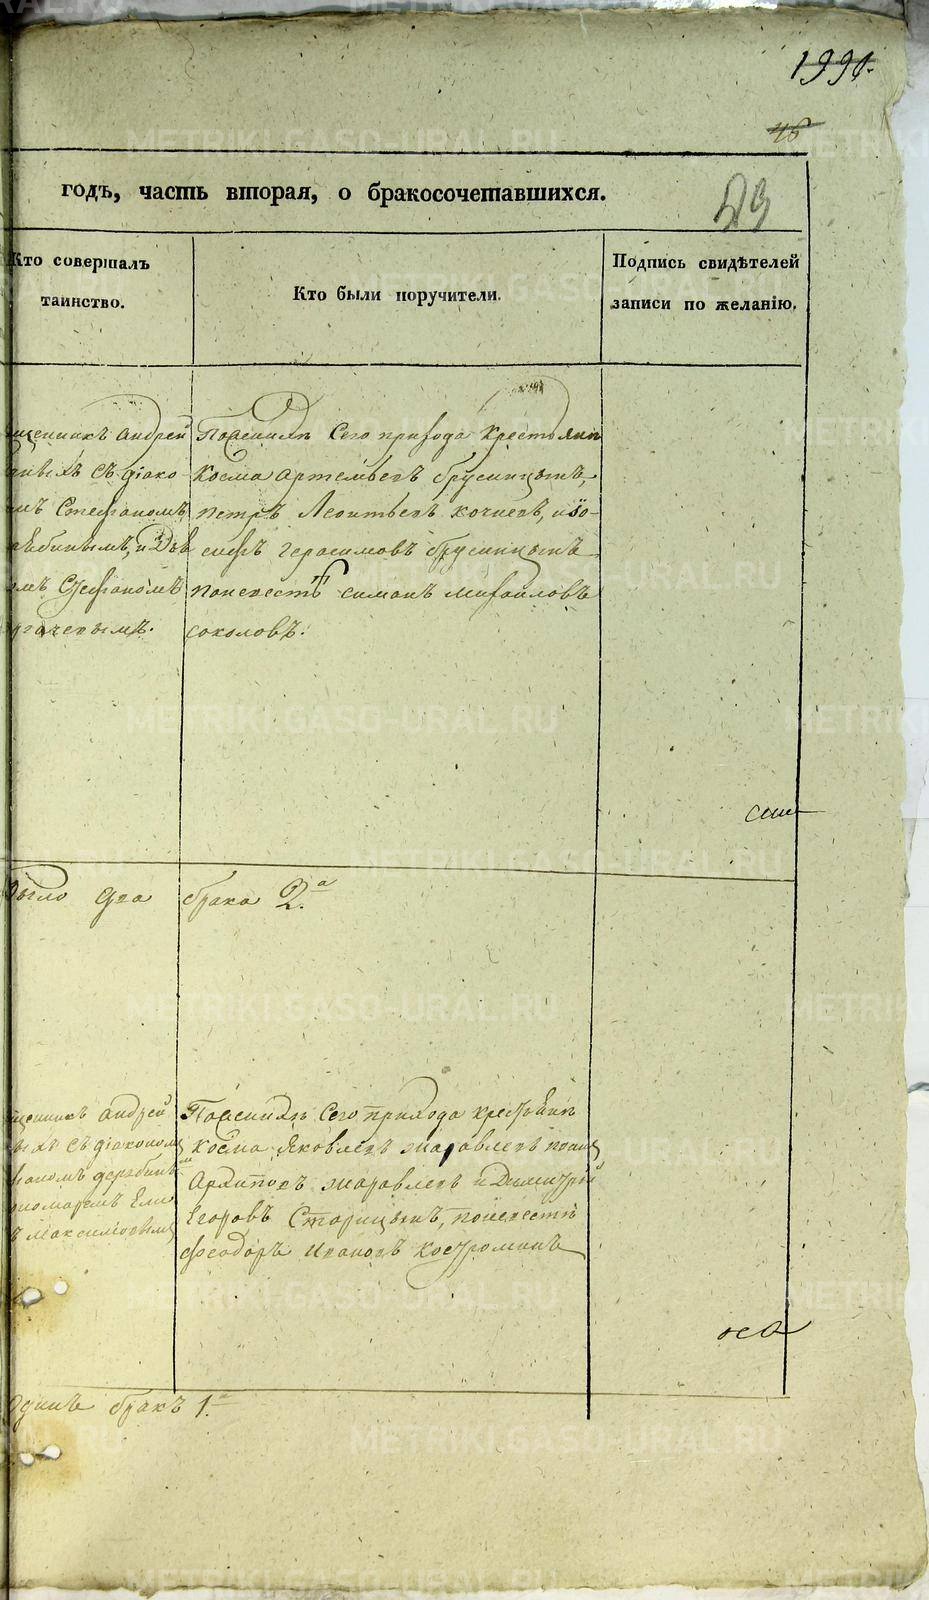 1991.
46
годъ, часть вторая, о бракосочетавшихся.
Кто совершалъ таинство.
Кто были поручители.
Подпись свидѣтелей записи по желанію.
щенникъ Андрей
съ діако-
мъ Стефаномъ
и
мъ Стефаномъ
Поженихѣ Сего прихода Крестьяне
Косма Артемьевъ Брусницынъ,
Петръ Леонтьевъ Кочневъ, иIо-
сифъ Герасимовъ Брусницынъ
поневестѣ Симонъ Михайловъ
Соколовъ.
было два брака 2.а
щенникъ Андрей
съ діакономъ
Максимовымъ
Поженихѣ Сего прихода крестьяне
Косма Яковлевъ Журавлевъ
Архиповъ Журавлевъ и Димитрій
Егоровъ Старицынъ, поневестѣ
Феодоръ Ивановъ Костроминъ
Одинъ бракъ 1.
METRIKI.GASO-URAL.RU